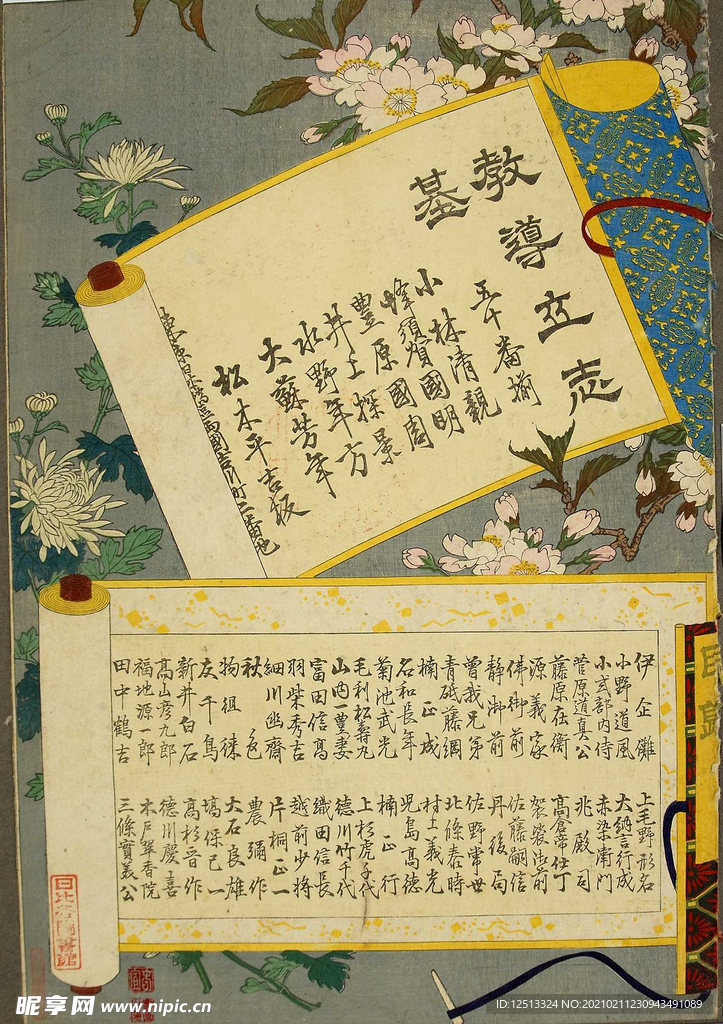 教導立志
基
五十番揃
小林清親
蜂須賀國明
豊原國周
井上探景
水野年方
大蘇芳年
松木平吉板
目錄
伊企儺
小野道風
小式部内侍
菅原道真公
藤原在衡
源義家
佛御前
静御前
曽我兄弟
青砥藤綱
楠正成
名和長年
菊池武光
毛利松壽丸
山内一豊妻
富田信高
羽柴秀吉
細川幽齋
秋色
物徂徠
灰千鳥
新井白石
高山彦九郎
福地源一郎
田中鶴吉
上毛野形名
大納言行成
赤染衛門
兆殿司
高倉帝仕丁
袈裟御前
佐藤嗣信
丹後局
佐野常世
北條泰時
村上義光
児島高德
楠正行
上杉虎千代
德川竹千代
織田信長
越前少将
片桐且一
農彌作
大石良雄
塙保己一
高杉晋作
德川慶喜
木戸翠香院
三條實美公
日比谷圖書館
昵享网 www.nipic.cn
ID:12513324 NO:20210211230943491089